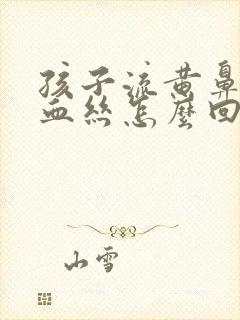 孩子流黄鼻
血丝怎麽回
山雪